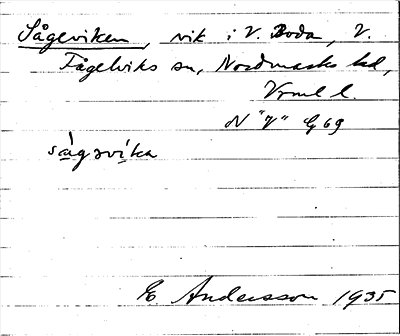 Sågeviken, vik i V. Boda, V.
Fågelviks sn, Nordmarks hd,
Vrml l.
N "V" G 69
sàgəvika
E. Andersson 1935